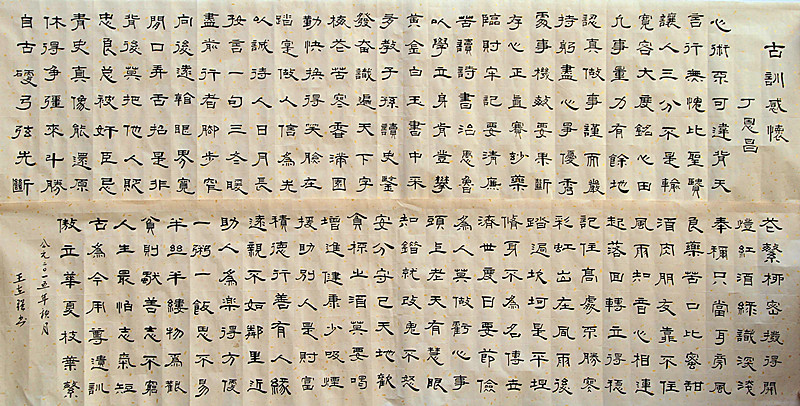 古訓感懷
丁恩昌
心術不可違背天
言行無愧比聖賢
讓人三分不是輸
寬容大度銘心田
凡事量力有餘地
認真做事謹而嚴
持躬盡心爭優秀
處事機敏要果斷
存心正直賽妙藥
臨財牢記要清廉
苦讀詩書治愚魯
以學立身肯登攀
黃金白玉書中采
教子孫讀史鑒
發奋識遍天下字
苦寒香滿園
勤快換得笑臉在
踏寔做人信為光
以誠待人日月長
言一句三冬暖
盡前行者脚步窄
向後遠瞻眼界寬
開口弄舌招是非
背後莫把他人貶
忠良总被奸臣忌
青史真像能還原
休得争彊來斗勝
自古硬弓弦先斷
花繁柳密得開
燈紅酒綠識深淺
奉只當耳旁風
良藥苦口比蜜甜
酒肉朋友靠不住
風雨知音心相連
起落回轉立得穩
記住高處不勝寒
彩虹出在風雨後
踏遍坎坷是平坦
脩身不為名傳世
濟世度日要節儉
為人莫做虧心事
頭上老天有慧眼
知錯就改鬼不怒
安分守己天地歡
貪莫要喝
增進健康少吸煙
援助別人是財富
積德行善有人緣
遠親不如鄰里近
助人為樂得方便
一粥一飯思不易
半絲半縷物為艱
貪則善志不窮
人生最怕志氣短
古為今用尊遺訓
傲立華夏枝葉繁
公元二〇一五年秋月
王書